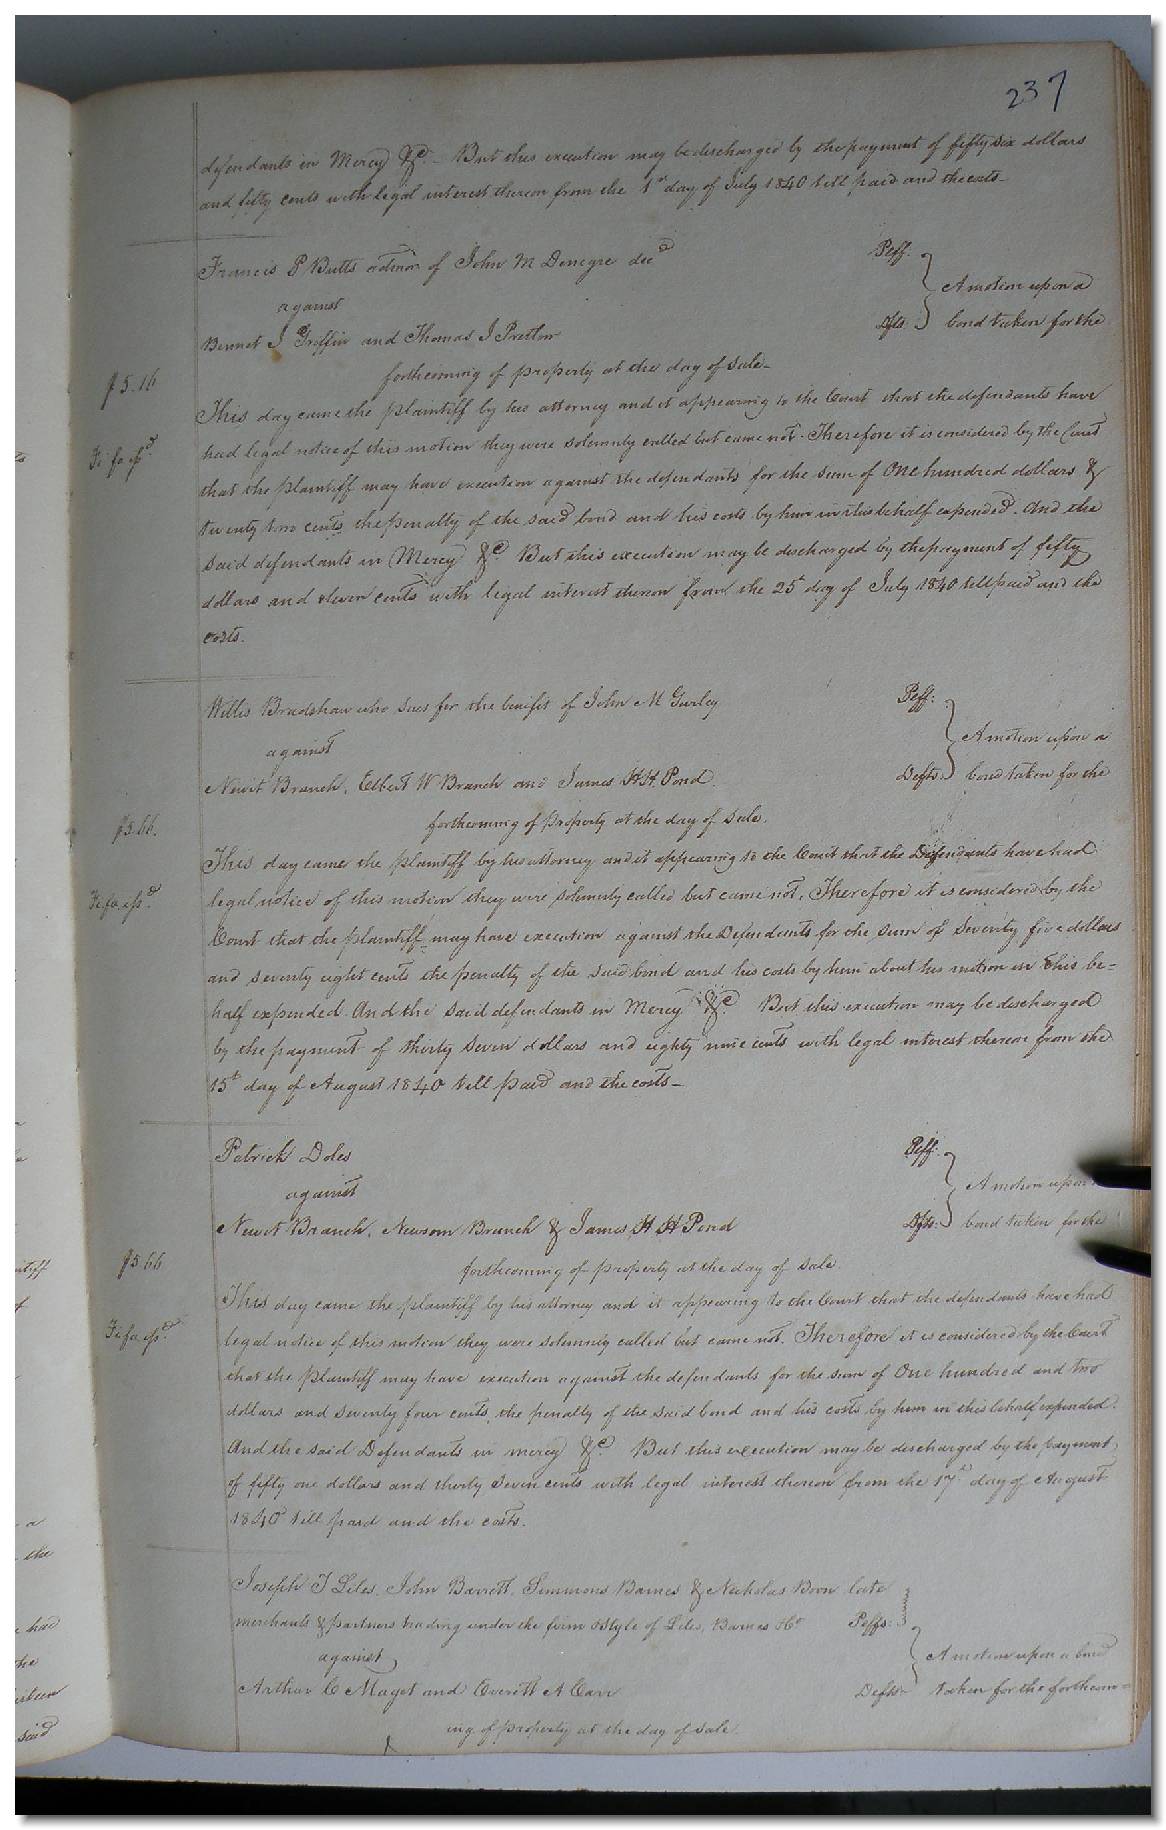 237
defendants in Mercy &c. But this execution may be discharged by the payment of fifty six dollars
and fifty cents with legal interest thereon from the 1st day of July 1840 till paid and the costs_
Francis P Butts admor of John M Denegre decd Plff.
against A motion upon a
Bennet J Griffin and Thomas J Pretlow Dfts. bond taken for the
forthcoming of property at the day of sale_
$5.16
This day came the plaintiff by his attorney and it appearing to the Court that the defendants have
had legal notice of this motion they were solemnly called but came not. Therefore it is considered by the Court
Fi fa
that the plaintiff may have execution against the defendants for the sum of One hundred dollars &
twenty two cents the penalty of the said bond and his costs by him in this behalf expended. And the
said defendants in Mercy &c. But this execution may be discharged by the payment of fifty
dollars and eleven cents with legal interest thereon from the 25t day of July 1840 till paid and the
costs.
Willis Bradshaw who sues for the benifit of John M Gurley Plff:
against A motion upon a
Newit Branch, Elbert W Branch and James H H Pond. Defts. bond taken for the
forthcoming of property at the day of sale.
$5.66.
This day came the plaintiff by his attorney and it appearing to the Court that the Defendants have had
legal notice of this motion they were solemnly called but came not, Therefore it is considered by the
Fi fa
Court that the plaintiff may have execution against the Defendants for the sum of Seventy five dollars
and seventy eight cents the penalty of the said bond and his costs by him about his motion in this be=
half expended. And the said defendants in Mercy &c. But this execution may be discharged
by the payment of thirty seven dollars and eighty nine cents with legal interest thereon from the
15t day of August 1840 till paid and the costs_
Patrick Doles Plff.
against A motion upon
Newit Branch, Newsom Branch & James H H Pond Dfts. bond taken for the
forthcoming of property at the day of sale.
$5.66
This day came the plaintiff by his attorney and it appearing to the Court that the defendants have had
legal notice of this motion they were solemnly called but came not. Therefore it is considered by the Court
Fi fa
that the plaintiff may have execution against the defendants for the sum of One hundred and two
dollars and seventy four cents, the penalty of the said bond and his costs by him in this behalf expended.
And the said Defendants in mercy &c. But this execution may be discharged by the payment
of fifty one dollars and thirty seven cents with legal interest thereon from the 17t day of August
1840 till paid and the costs.
Joseph T Liles, John Barrett, Simmons Barnes & Nicholas Boon late
merchants & partners trading under the firm & style of Liles, Barnes & Co Plffs:
against A motion upon a bond
Arthur C Maget and Everett A Carr Defts. taken for the forthcom=
ing of property at the day of sale.